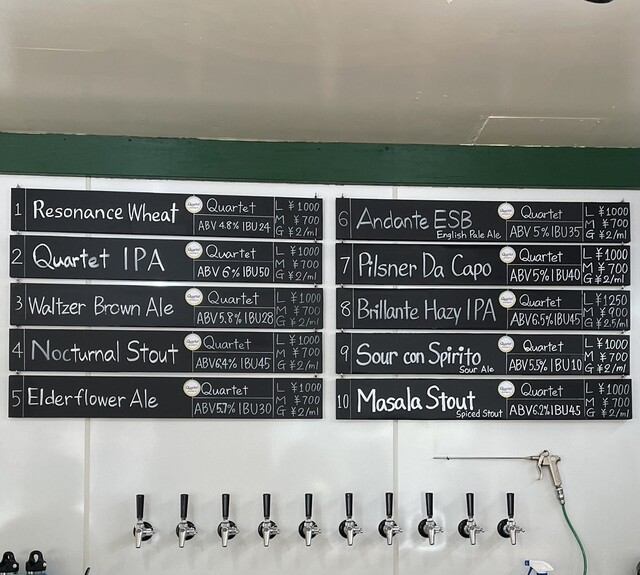 1 Resonance Wheat
Quartet
ABV 4.8% IBU 24
L ¥1000
M ¥700
G ¥2/ml
2 Quartet IPA
Quartet
ABV 6% IBU50
L ¥1000
M ¥700
G ¥2/ml
3 Waltzer Brown Ale
Quartet
ABV 5.8% IBU28
L ¥1000
M ¥700
G ¥2/ml
4 Nocturnal Stout
Quartet
ABV 6.4% IBU45
L ¥1000
M ¥700
G ¥2/ml
5 Elderflower Ale
Quartet
ABV 5.7% IBU30
L ¥1000
M ¥700
G ¥2/ml
6 Andante ESB
English Pale Ale
Quartet
ABV 5% IBU35
L ¥1000
M ¥700
G ¥2/ml
7 Pilsner Da Capo
Quartet
ABV 5% IBU40
L ¥1000
M ¥700
G ¥2/ml
8 Brillante Hazy IPA
Quartet
ABV 6.5% IBU45
L ¥1250
M ¥900
G ¥2.5/ml
9 Sour con Spirito
Sour Ale
Quartet
ABV 5.5% IBU10
L ¥1000
M ¥700
G ¥2/ml
10 Masala Stout
Spiced Stout
Quartet
ABV 6.2% IBU45
L ¥1000
M ¥700
G ¥2/ml